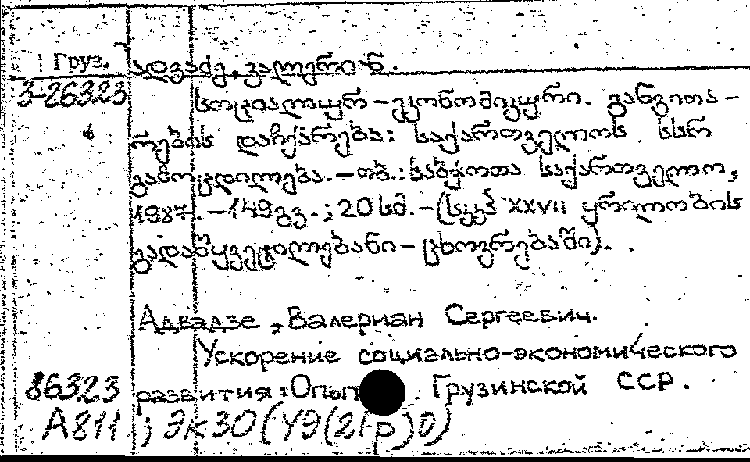 Груз. ადვაძე, ვალერიან.
3-26323 სოციალურ-ეკონომიკური განვითა-
რების დაჩქარება: საქართველოს სსრ
გამოცდილება.-თბ.: საბჭოთა საქართველო,
1987.-149გვ.; 20სმ.-(სკკპ XXVII ყრილობის
გადაწყვეტილებანი-ცხოვრებაში).
Адвадзе, Валериан Сергеевич.
Ускорение социально-экономического
86323 развития: Опыт Грузинской ССР.
А811; ЭК30(УЭ(2Гр)0)